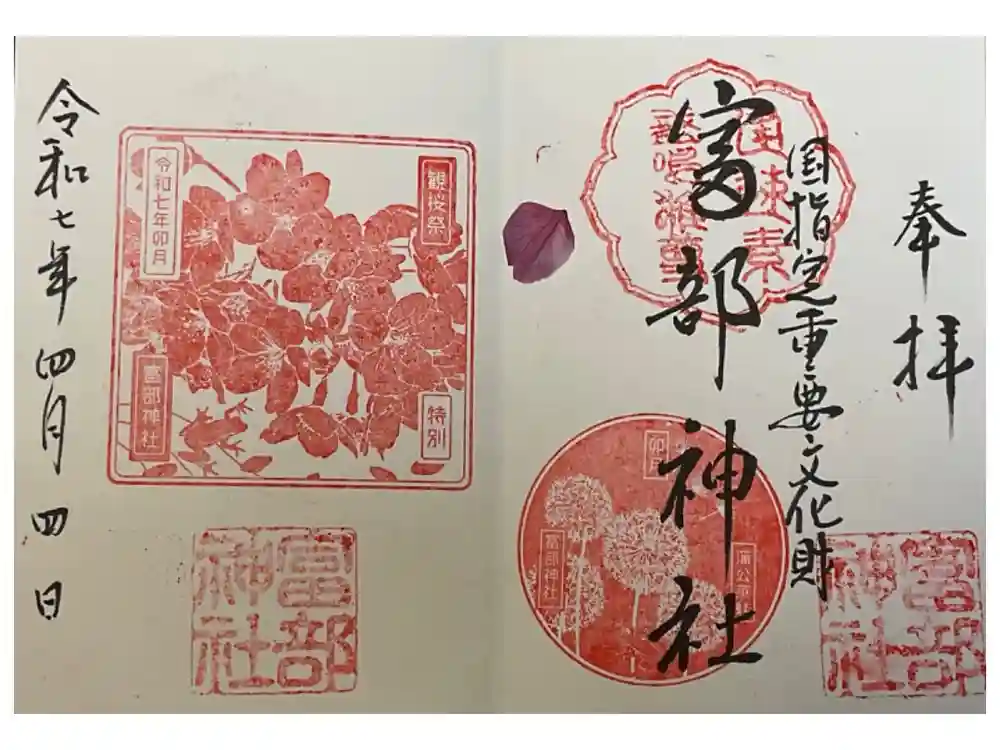 奉拝
国指定重要文化財
富部神社
卯月
富部神社
富部神社
観桜祭
令和七年卯月
特別
富部神社
富部神社
令和七年四月四日